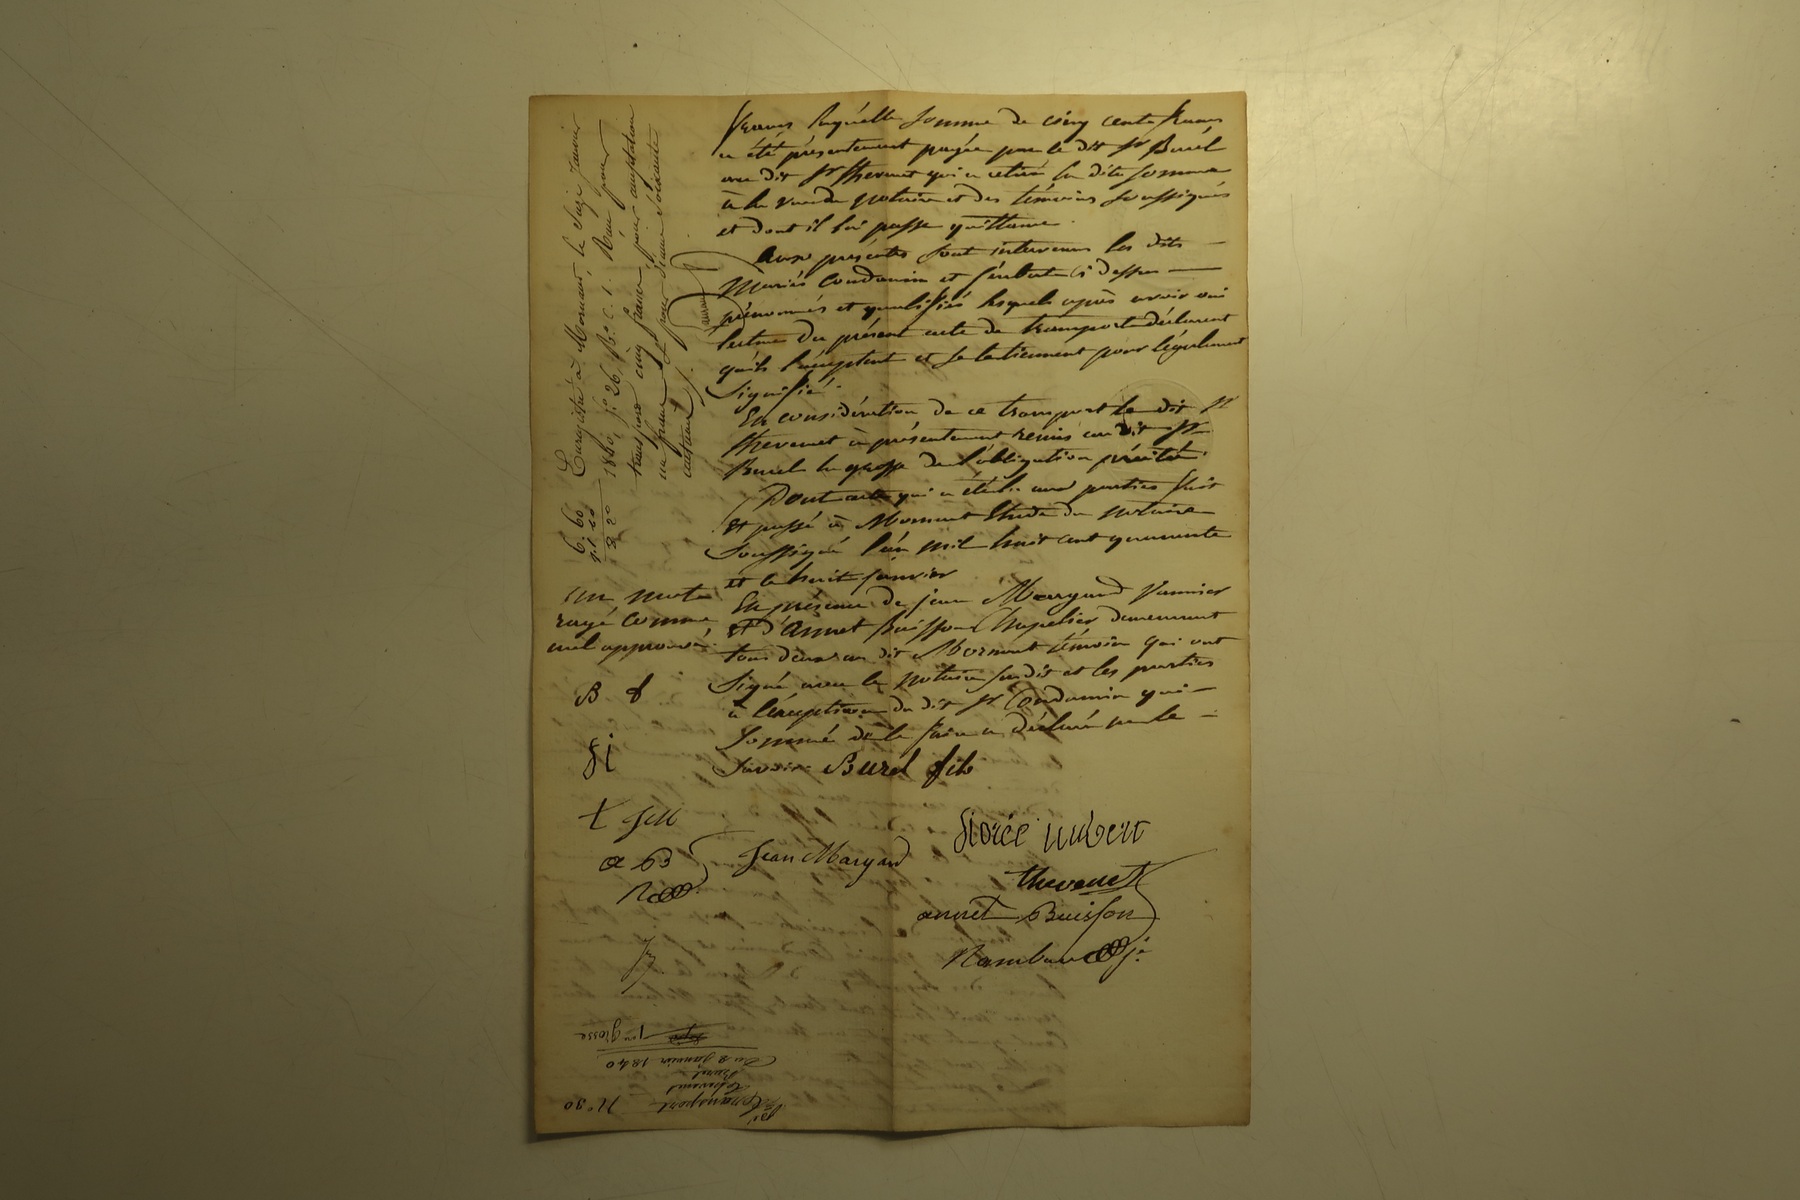 francs laquelle somme de cinq cents francs
a été présentement payée par le dit Sr Burel
au dit Sr thevenet qui a retiré la dite somme
à la vue du notaire et des témoins soussignés
et dont il lui passe quittance
Aux présentes sont intervenus les dits
Mariés Condamin et ci dessus
prénommés et qualifiés lesquels après avoir oui
lecture du présent acte de transport déclarent
qu'ils l'acceptent et se le tiennent pour légalement
signifié.
En considération de ce transport le dit Sr
thevenet à présentement remis au dit Sr
Burel la grosse de l'obligation précitée.
Dont acte qui a été lu aux parties fait
et passé à Mornant Etude du notaire
soussigné l'an mil huit cent quarante
et le huit janvier
En présence de jean Margand Vannier
et d'annet Buisson Chapelier demeurant
tous deux au dit Mornant témoins qui ont
signé avec le notaire susdit et les parties
à l'exception du dit Sr Condamin qui
sommé de le faire a déclaré ne le
savoir. Burel fils
jean Margand
thevenet
annet Buisson
Enregistré à Mornant, le Seize Janvier
1840, fo 26, Ro C. 1. Reçu pour
transport cinq francs, pour acceptation
un franc et pour dixme soixante
centimes
6. 60
un mot
rayé comme
nul approuvé
B f
t JM
a B
No 30
transport
thevenet
Burel
Du 8 janvier 1840
1re grosse